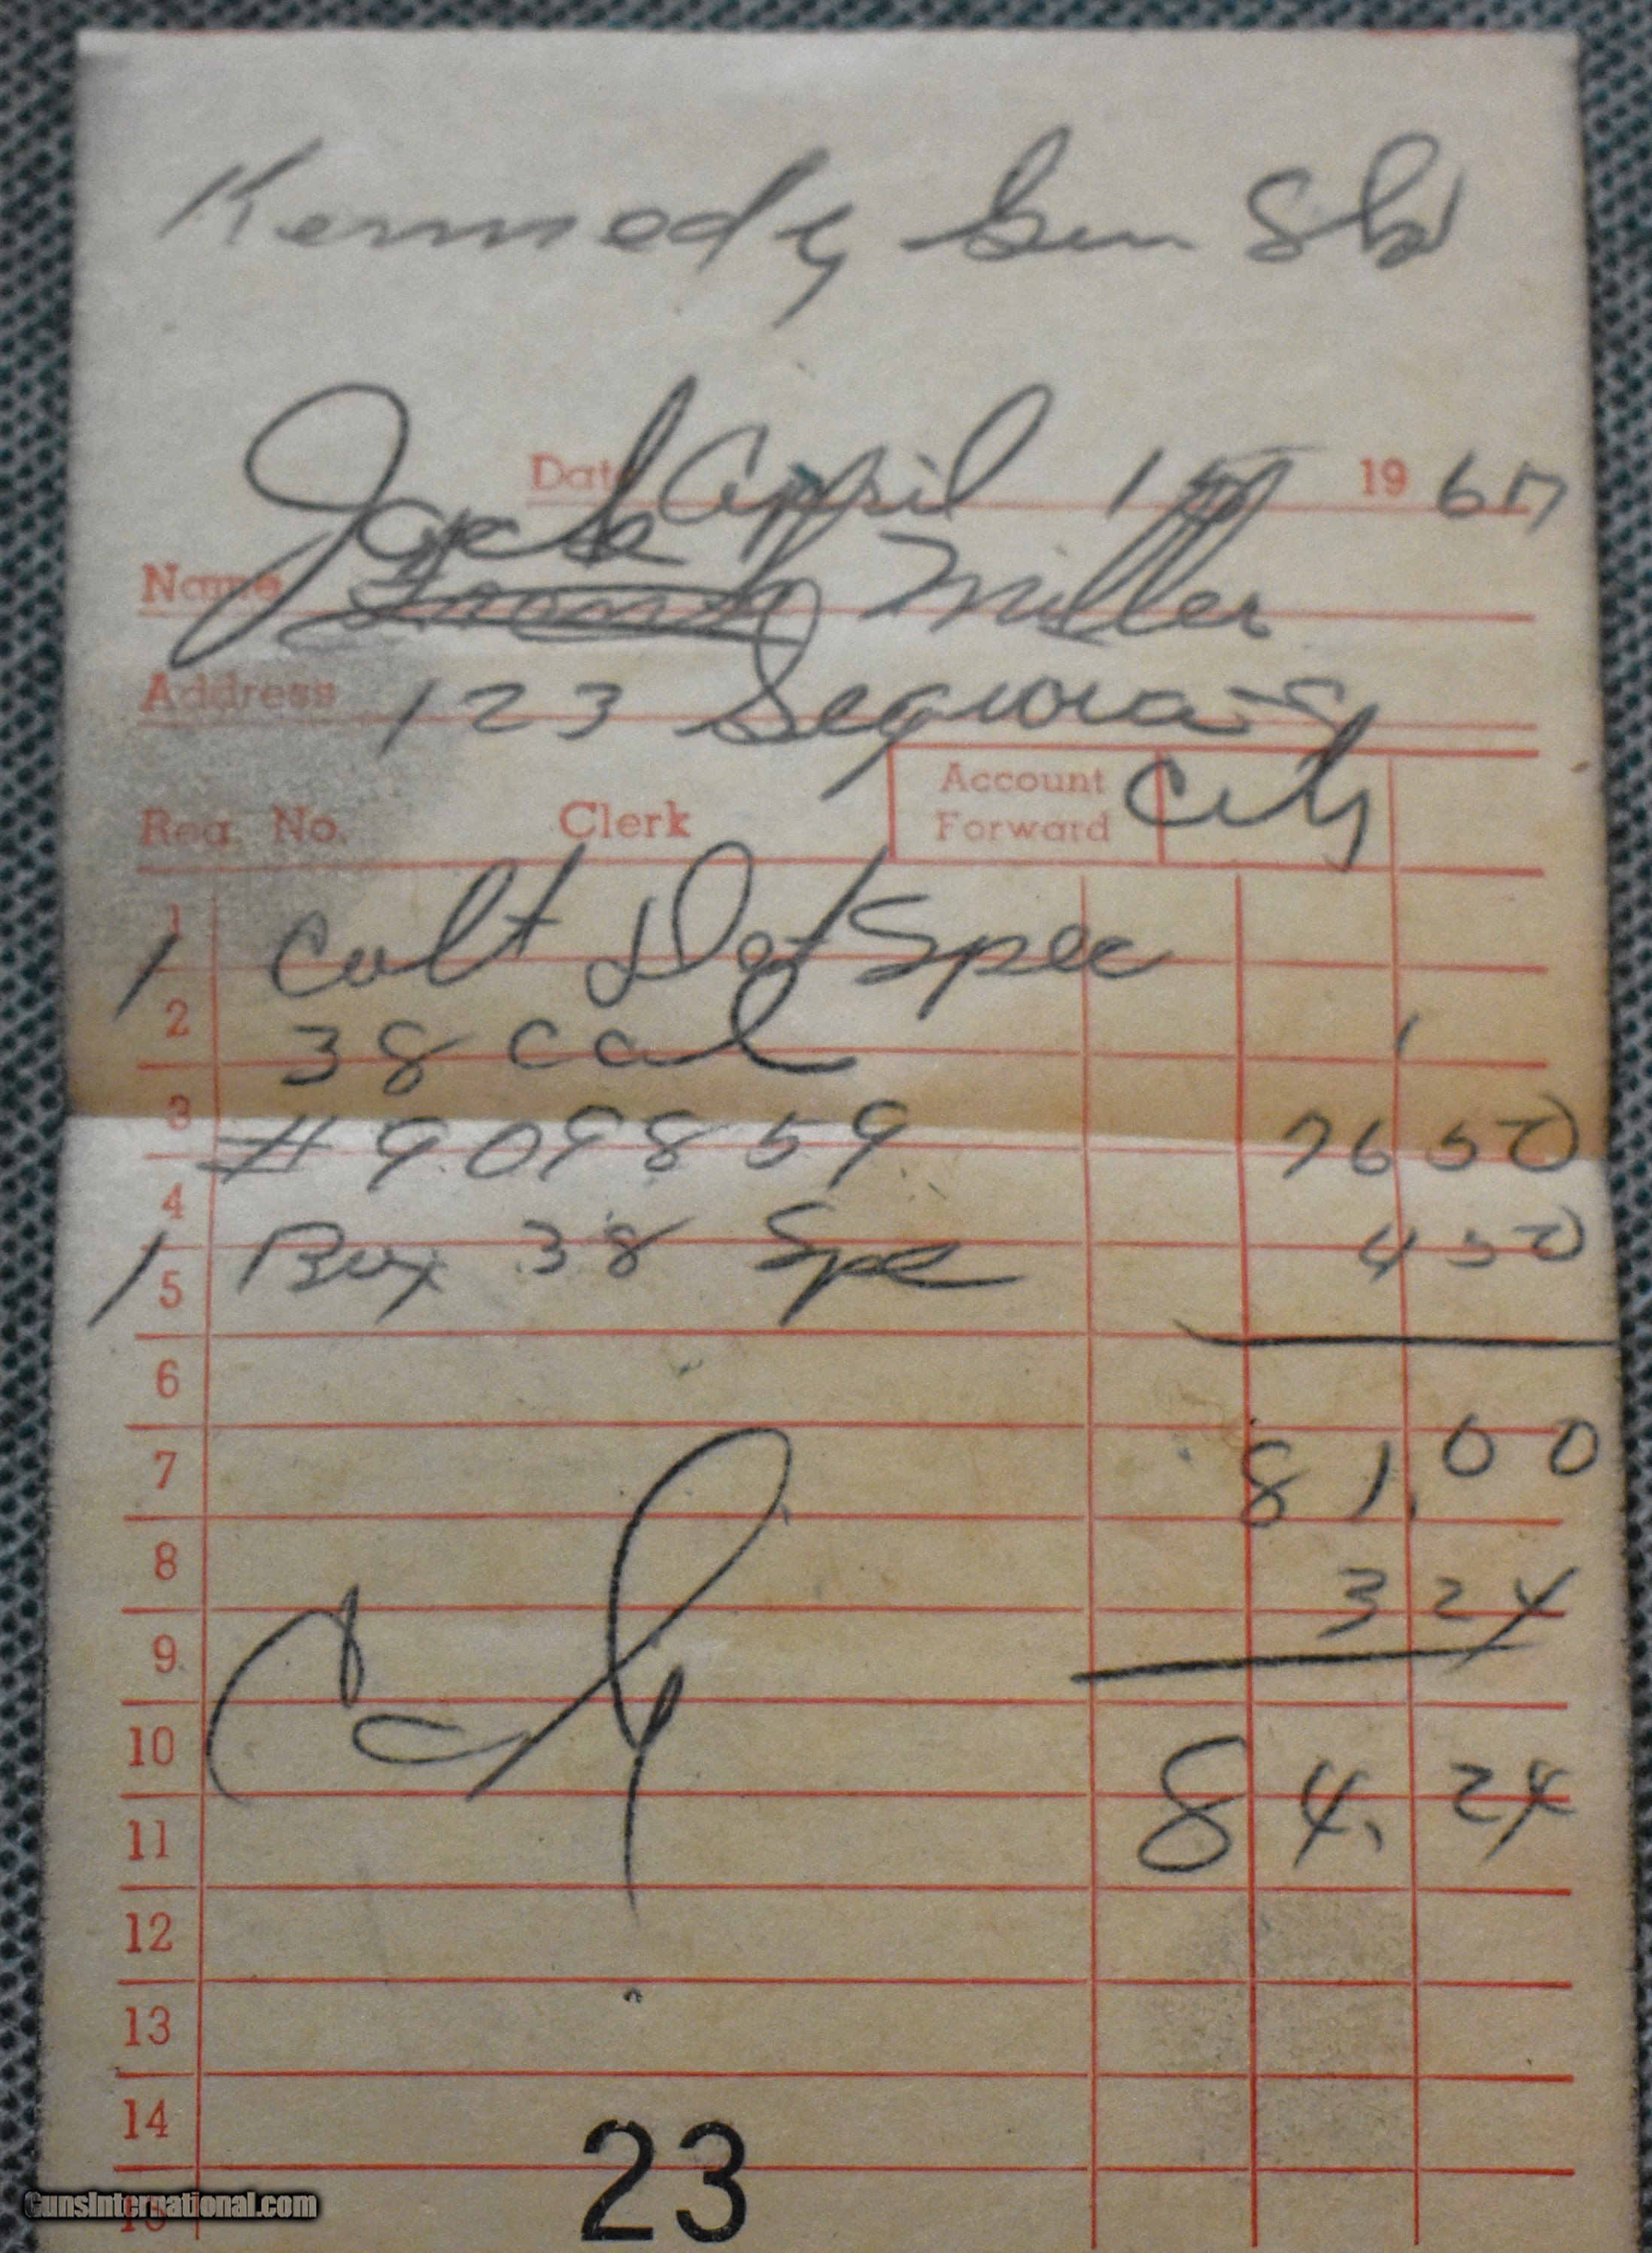 Kennedy Gun Sh
Date April 15 19 67
Jack
Name Miller
Address 123 Sequoia
Account Forward City
Reg. No. Clerk
1 1 Colt Det Spec
2 38 cal
3 #909859 76 50
4 1 Box 38 Spc 4 50
5
6
7 81.00
8 3 24
9
10 84.24
11
12
13
14
15
23
GunsInternational.com